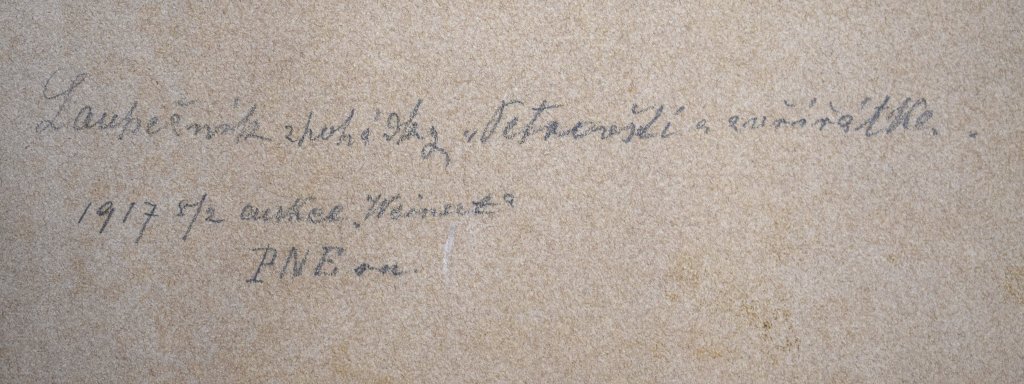 Loupečník z pohádky „Petrovští a zvířátka.
1917 5/2 aukce „Weinert“
PNE